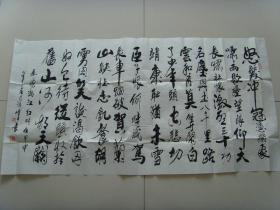 怒髮冲冠憑欄處瀟
瀟雨歇抬望眼仰天
長嘯壯懷激烈三十功
名塵與土八千里路
雲和月莫等閒白
了少年頭空悲切
靖康恥猶未雪
臣子恨何時滅駕
長車踏破賀蘭
山缺壯志飢餐胡
虜肉笑談渴飲匈
奴血待從頭收拾
舊山河朝天闕